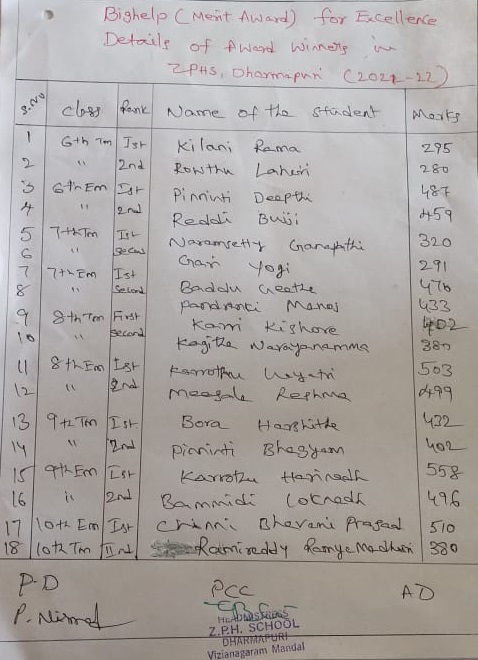 Bighelp (Merit Award) for Excellence
Details of Award Winners in
ZPHS, Dharmapuri (2021-22)
S.No Class Rank Name of the student Marks
1 6th Tm Ist Kilani Rama 295
2 " 2nd Rowthu Lahari 280
3 6th Em Ist Pinninti Deepthi 487
4 " 2nd Reddi Bujji 459
5 7th Tm Ist Naramsetty Ganapathi 320
6 " Second Gari Yogi 291
7 7th Em Ist Baddu Geetha 476
8 " Second Pandranki Manoj 433
9 8th Tm First Karri Kishore 402
10 " Second Kagitha Narayanamma 380
11 8th Em Ist Karrothu 503
12 " 2nd Meesala Reshma 499
13 9th Tm Ist Bora Harshitha 432
14 " 2nd Pinninti Bhagyam 402
15 9th Em Ist Karrothu Harinadh 558
16 " 2nd Bammidi Loknadh 496
17 10th Em Ist Chinni Bhavani Prasad 510
18 10th Tm IInd Ramireddy Ramya Madhuri 380
P.D PCC AD
P. Nirmal
HEADMISTRESS
Z.P.H. SCHOOL
DHARMAPURI
Vizianagaram Mandal